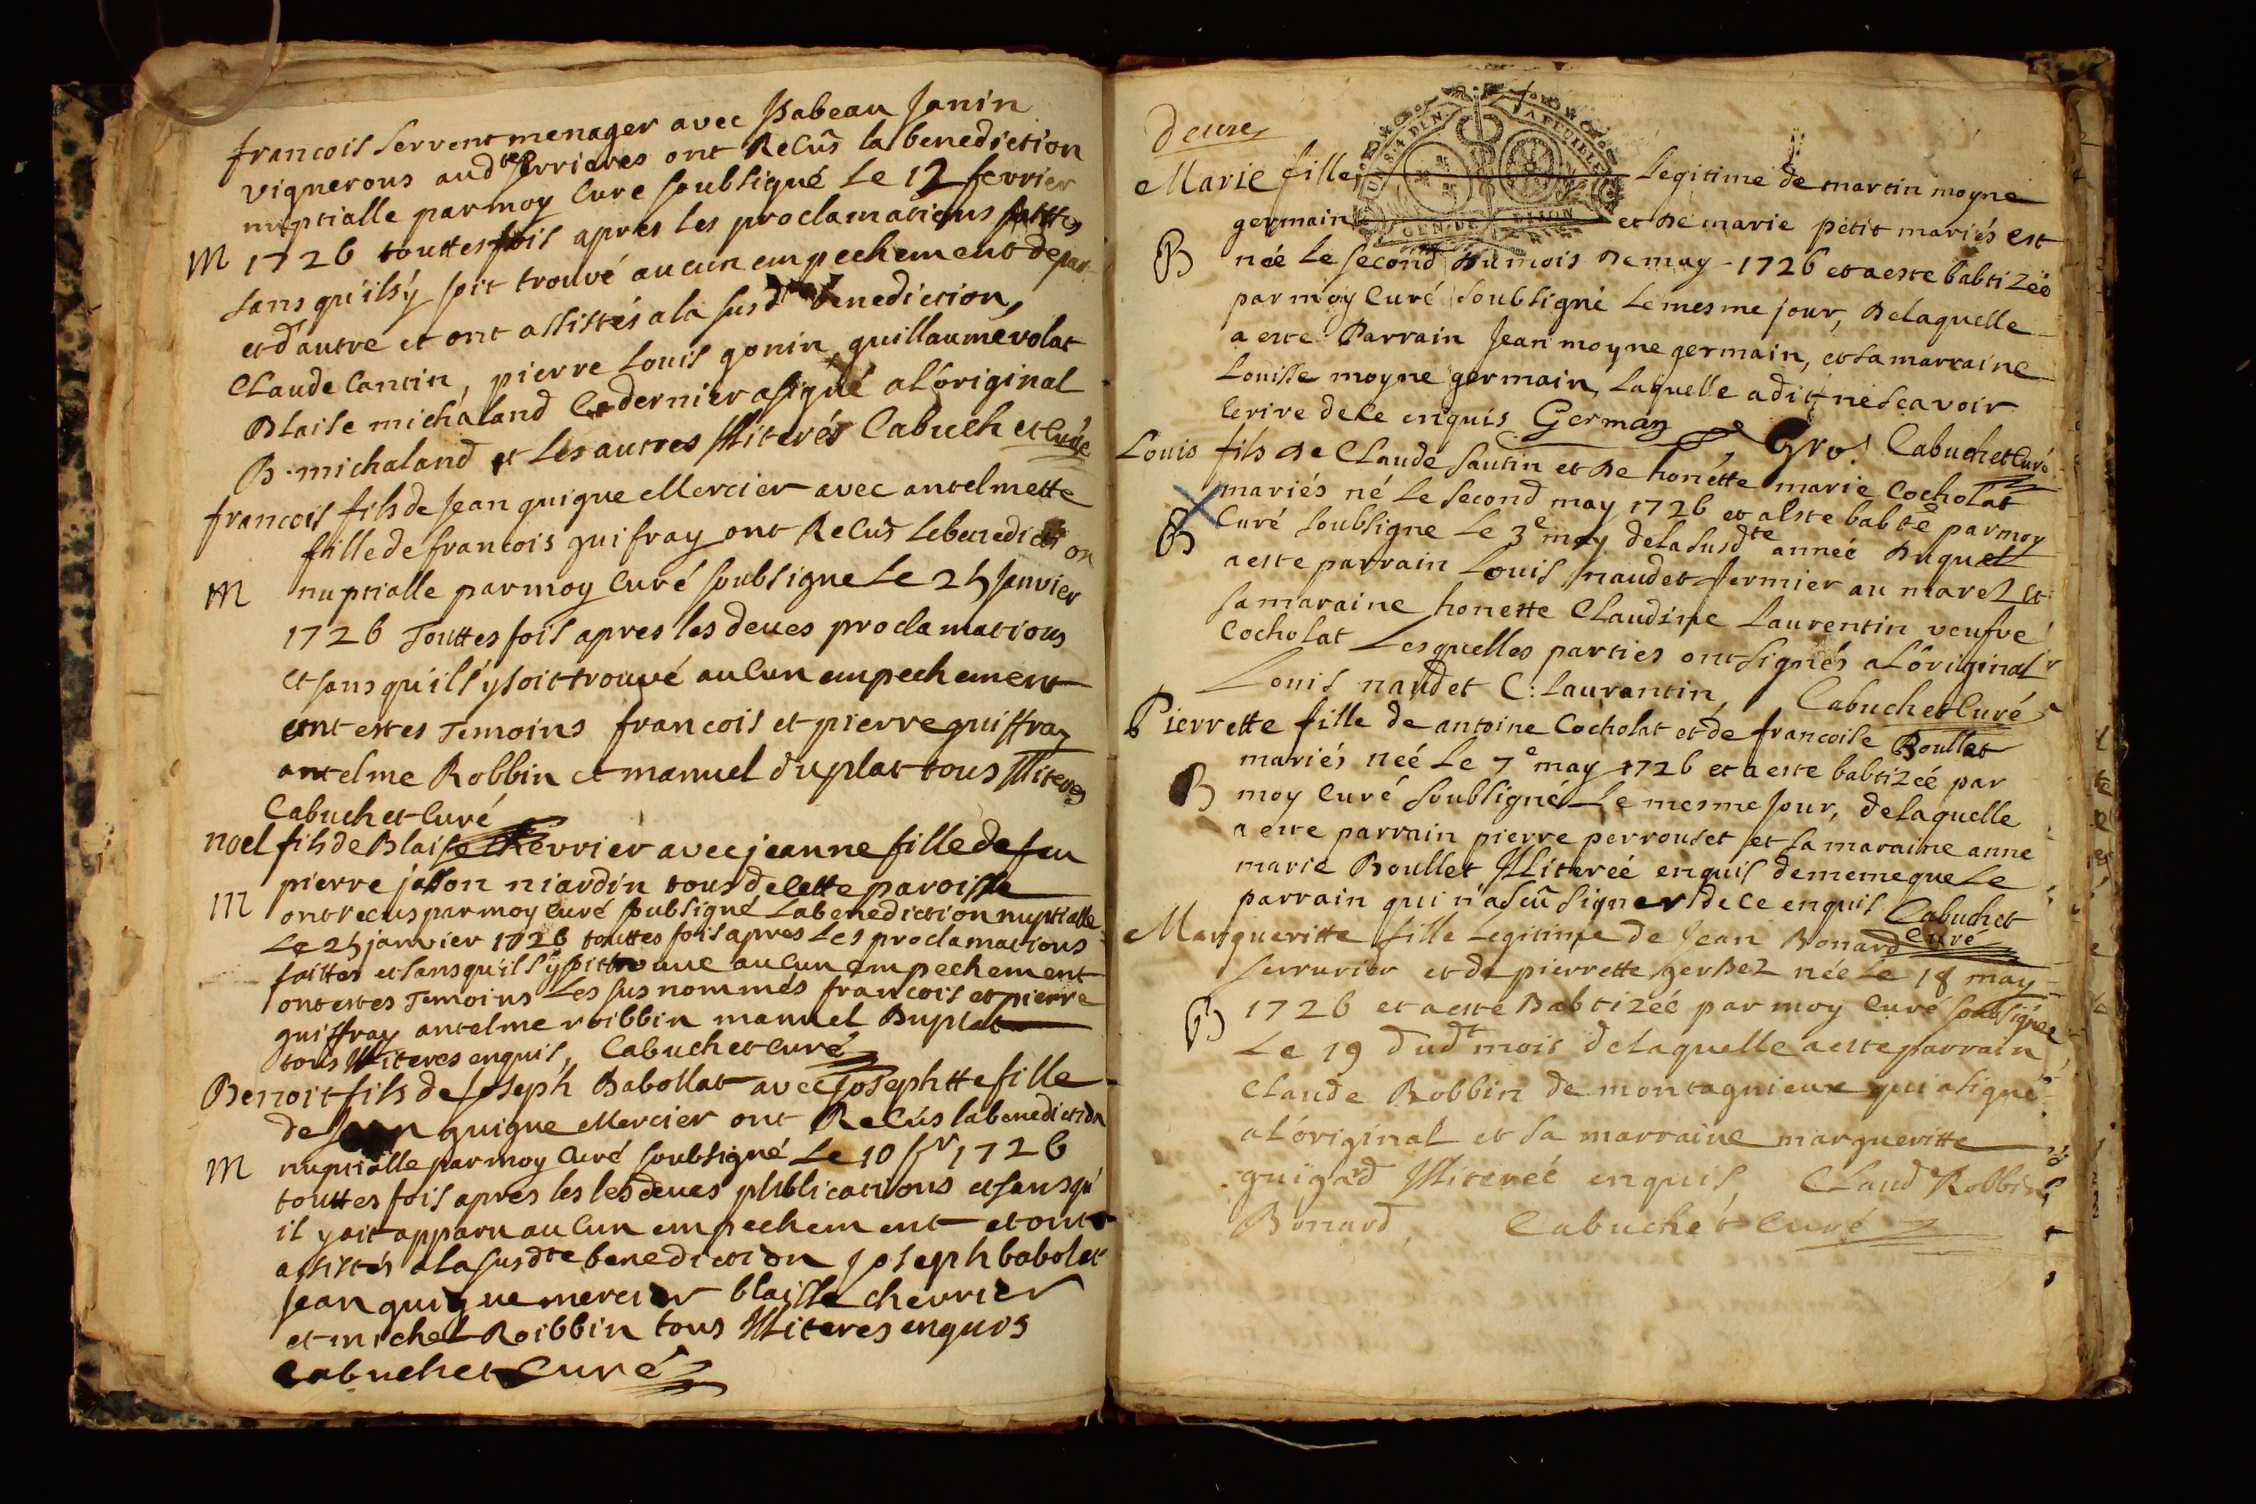 francois servent menager avec Isabeau Janin
vignerons aud serrieres ont Recûs la benediction
nuptialle par moy Curé soubsigné Le 12 fevrier
M 1726 touttesfois apres les proclamations faittes
sans qu'ils'y soit trouvé aucun empechement de part
et d'autre et ont assistés a la susdte benediction,
Claude Cantin, pierre Louis gonin guillaume volat
Blaise michaland Le dernier a signé a L'original
B. michaland et Les autres Illiterés Cabuchet Curé
francois fils de Jean guigue Mercier avec antelmette
fille de francois guifray ont Recûs Le benediction
M nuptialle par moy Curé soubsigne Le 25 Janvier
1726 Touttesfois apres les deues proclamations
et sans qu'ils'y soit trouvé aucun empechement
ont estes Temoins francois et pierre guiffray
antelme Robbin et manuel duplat tous Illiteres
Cabuchet Curé
noel fils de Blaise Chevrier avec jeanne fille de feu
pierre niardin tous de Cette paroisse
M ont recus par moy Curé soubsigné La benediction nuptialle
Le 25 janvier 1726 touttes fois apres Les proclamations
faittes et sans qu'ils'y soit trouvé aucun empechement
ont estes Temoins Les sus nommés francois et pierre
guiffray antelme roibbin manuel Duplat
tous Illiteres enquis, Cabuchet Curé
Benoit fils de Joseph Babollat avec Josephtte fille
de Jean guigue Mercier ont Recûs la benediction
M nuptialle par moy Curé soubsigné Le 10 1726
touttes fois apres les les deues publications et sans qu'
il y ait apparu aucun empechement et ont
assistés a la susdte benediction Joseph babolat
Jean guigue mercier blaisse chevrier
et michel Roibbin tous Illiteres enquis
Cabuchet Curé
deure
Marie fille Legitime de martin moyne
germain et de marie petit mariés est
B née Le second du mois de may 1726 et a este babtizeé
par moy Curé soubsigné Le mesme jour, De laquelle
a este Parrain Jean moyne germain, et sa marraine
Louisse moyne germain, Laquelle a dit ne scavoir
Ecrire de ce enquis Germain Gro. Cabuchet Curé
Louis fils de Claude sautin et de honétte marie Cocholat
mariés né Le second may 1726 et a este babté par moy
B Curé soubsigne Le 3e may de la susdte année Duquel
a este parrain Louis naudet fermier au marez et
sa maraine honette Claudine Laurentin veufve
Cocholat Lesquelles parties ont signés a L'original
Louis naudet C: laurantin, Cabuchet Curé
Pierrette fille de antoine Cocholat et de francoise Boullet
mariés neé Le 7e may 1726 et a este babtizeé par
B moy Curé soubsigné Le mesme Jour, de laquelle
a este parrain pierre perrouset et sa maraine anne
marie Boullet Illitereé enquis de meme que Le
parrain qui n'a sçû signer de ce enquis Cabuchet
Curé
Margueritte fille Legitime de Jean Bonard
serrurier et de pierrette gerbez née Le 18 may
B 1726 et a esté Babtizeé par moy Curé soubsigné
Le 19 dudt mois de laquelle a este parrain
Claude Robbin de montagnieux qui a signé
a L'original et sa marraine margueritte
guigard Illitereé enquis, Claud Robbin
Bonard, Cabuchet Curé